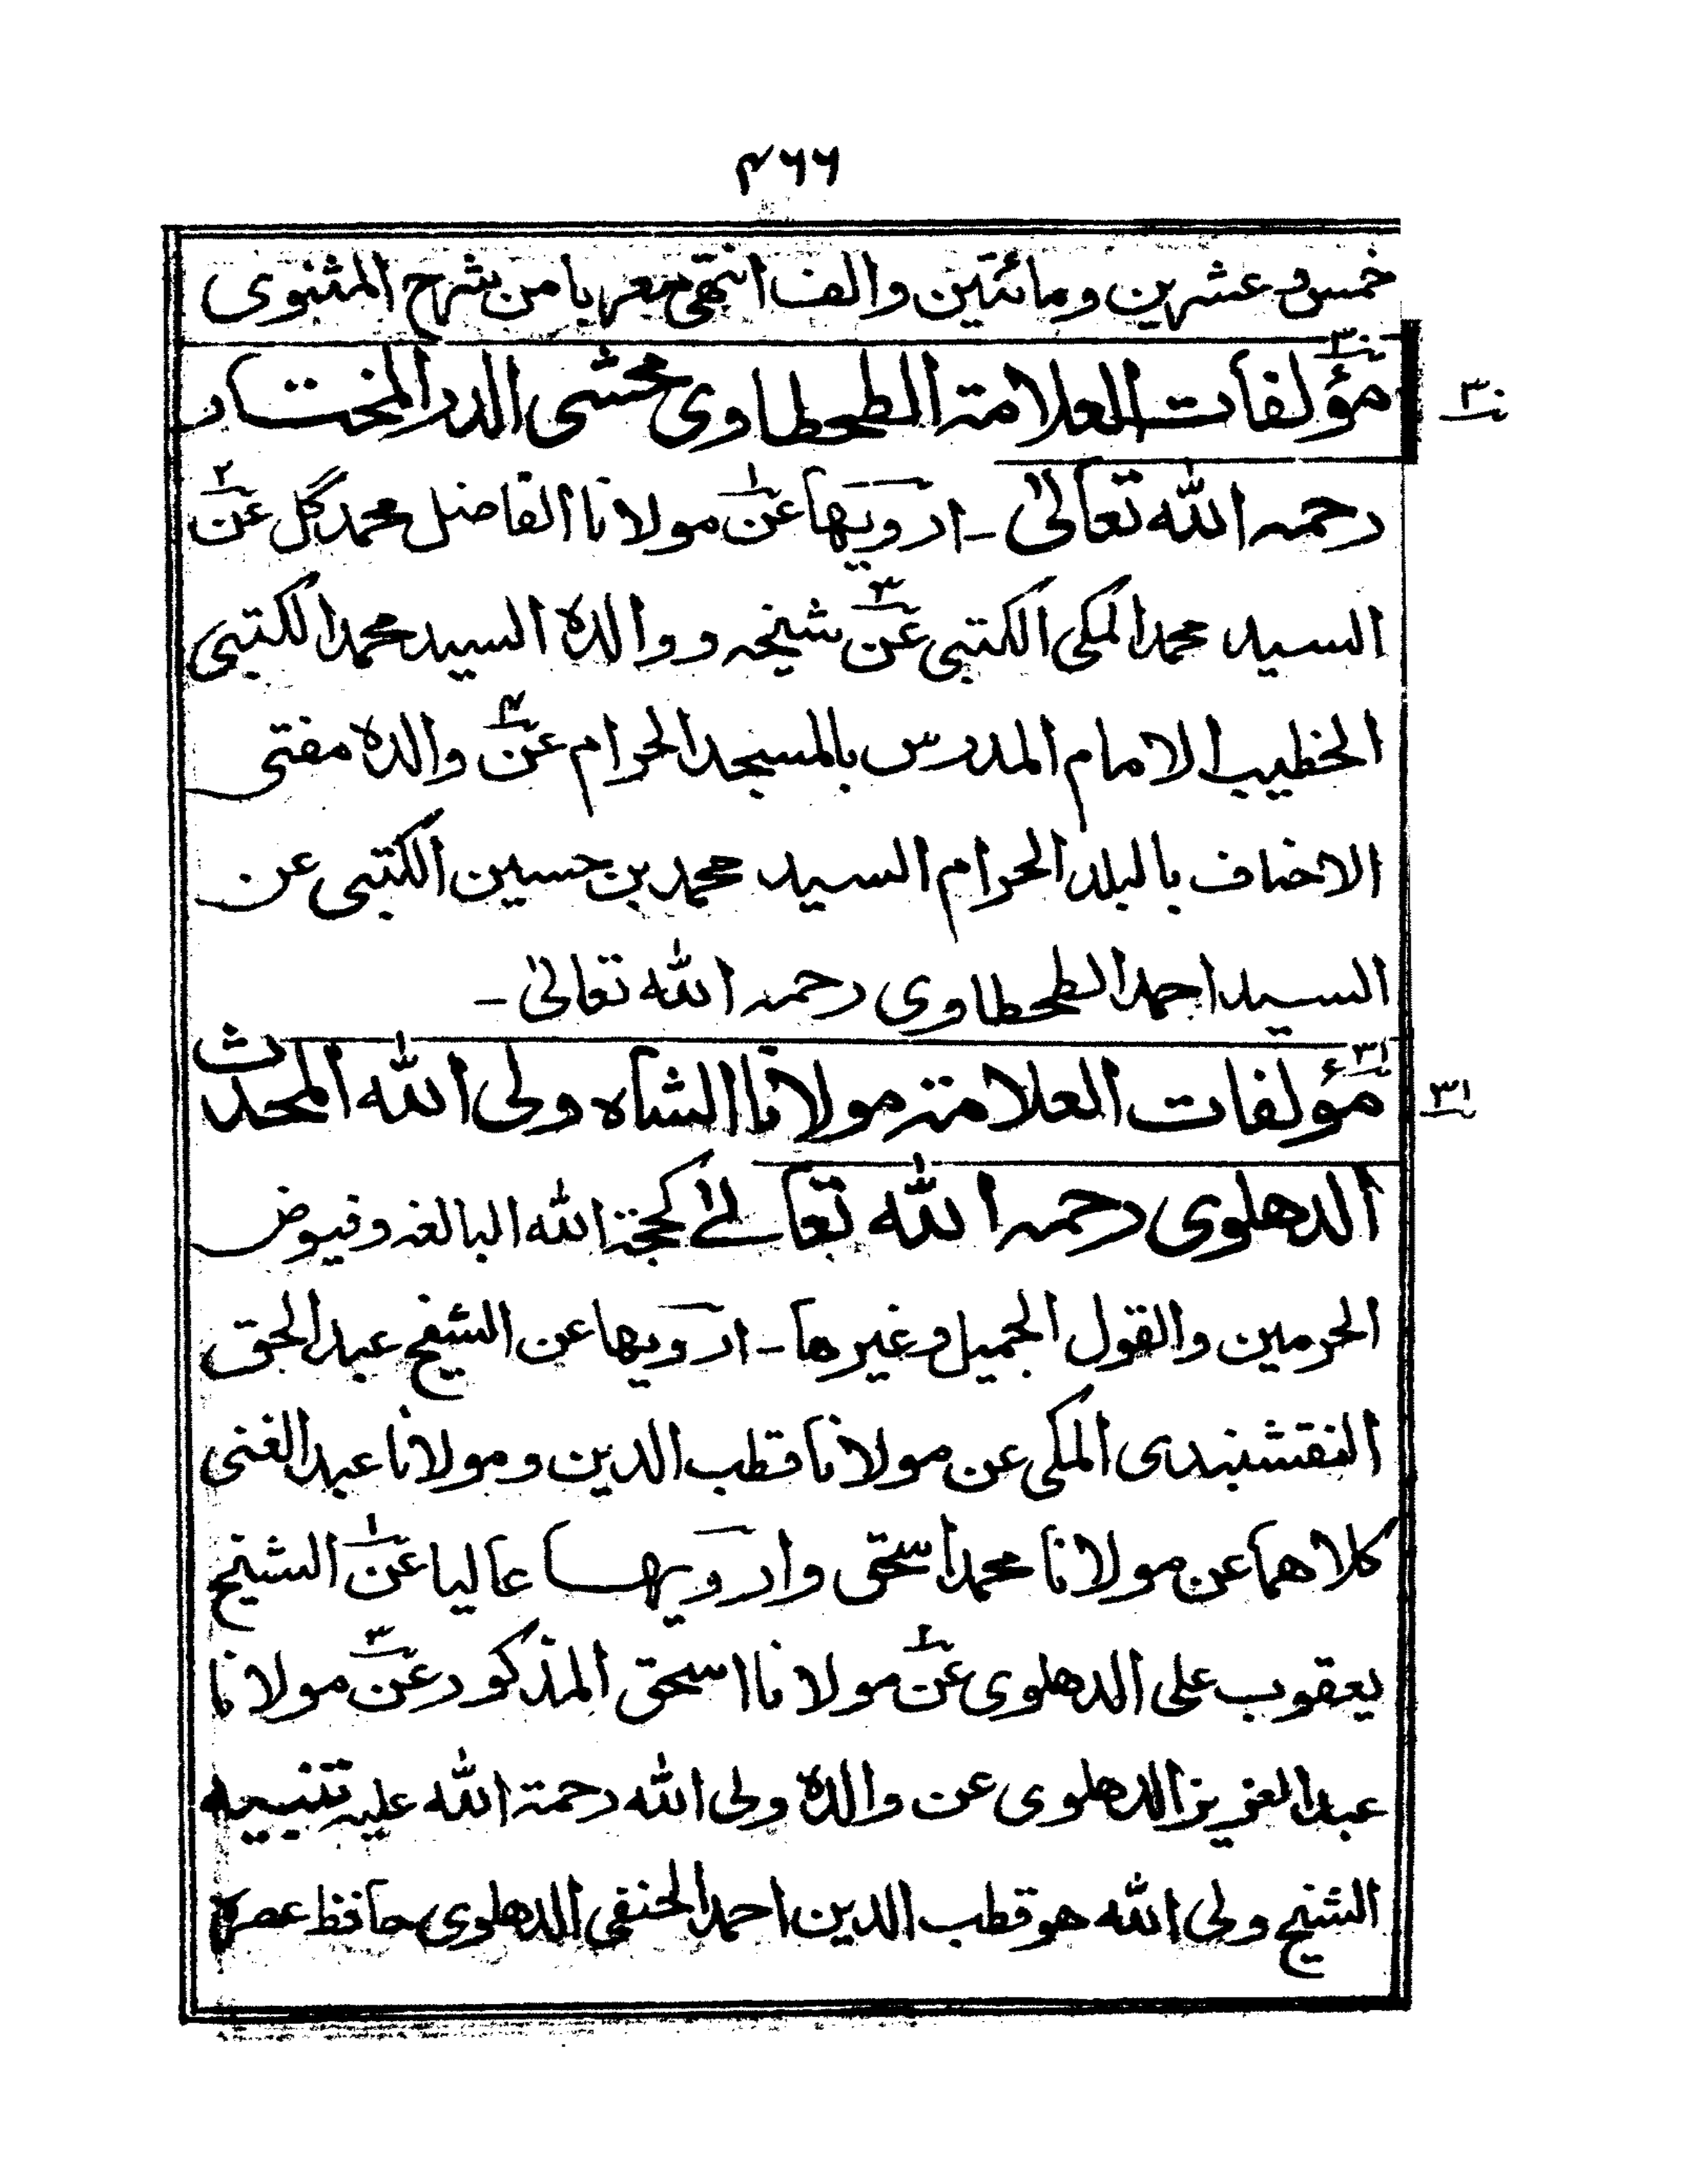 ٤٦٦
خمس وعشرين ومائتين والف انتهى معربا من شرح المثنوى
٣٠
مؤلفات العلامة الطحطاوى محشى الدر المختار
٣٠
رحمه الله تعالىٰ - ارويها عن١ مولانا الفاضل محمد گل عن٢
السيد محمد المكى الكتبى عن٣ شيخه ووالده السيد محمد الكتبى
الخطيب الامام المدرس بالمسجد الحرام عن٤ والده مفتى
الاحناف بالبلد الحرام السيد محمد بن حسين الكتبى عن
السيد احمد الطحطاوى رحمه الله تعالىٰ -
٣١
مؤلفات العلامة مولانا الشاه ولى الله المحدث
٣١
الدهلوى رحمه الله تعالےٰ كحجة الله البالغه وفيوض
الحرمين والقول الجميل وغيرها - ارويها عن الشيخ عبد الحق
النقشبندى المكى عن مولانا قطب الدين ومولانا عبد الغنى
كلاهما عن مولانا محمد اسحق وارويها عاليا عن١ الشيخ
يعقوب على الدهلوى عن٢ مولانا اسحق المذكور عن٣ مولانا
عبد العزيز الدهلوى عن والده ولى الله رحمة الله عليه تنبيه
الشيخ ولى الله هو قطب الدين احمد الحنفى الدهلوى حافظ عصره